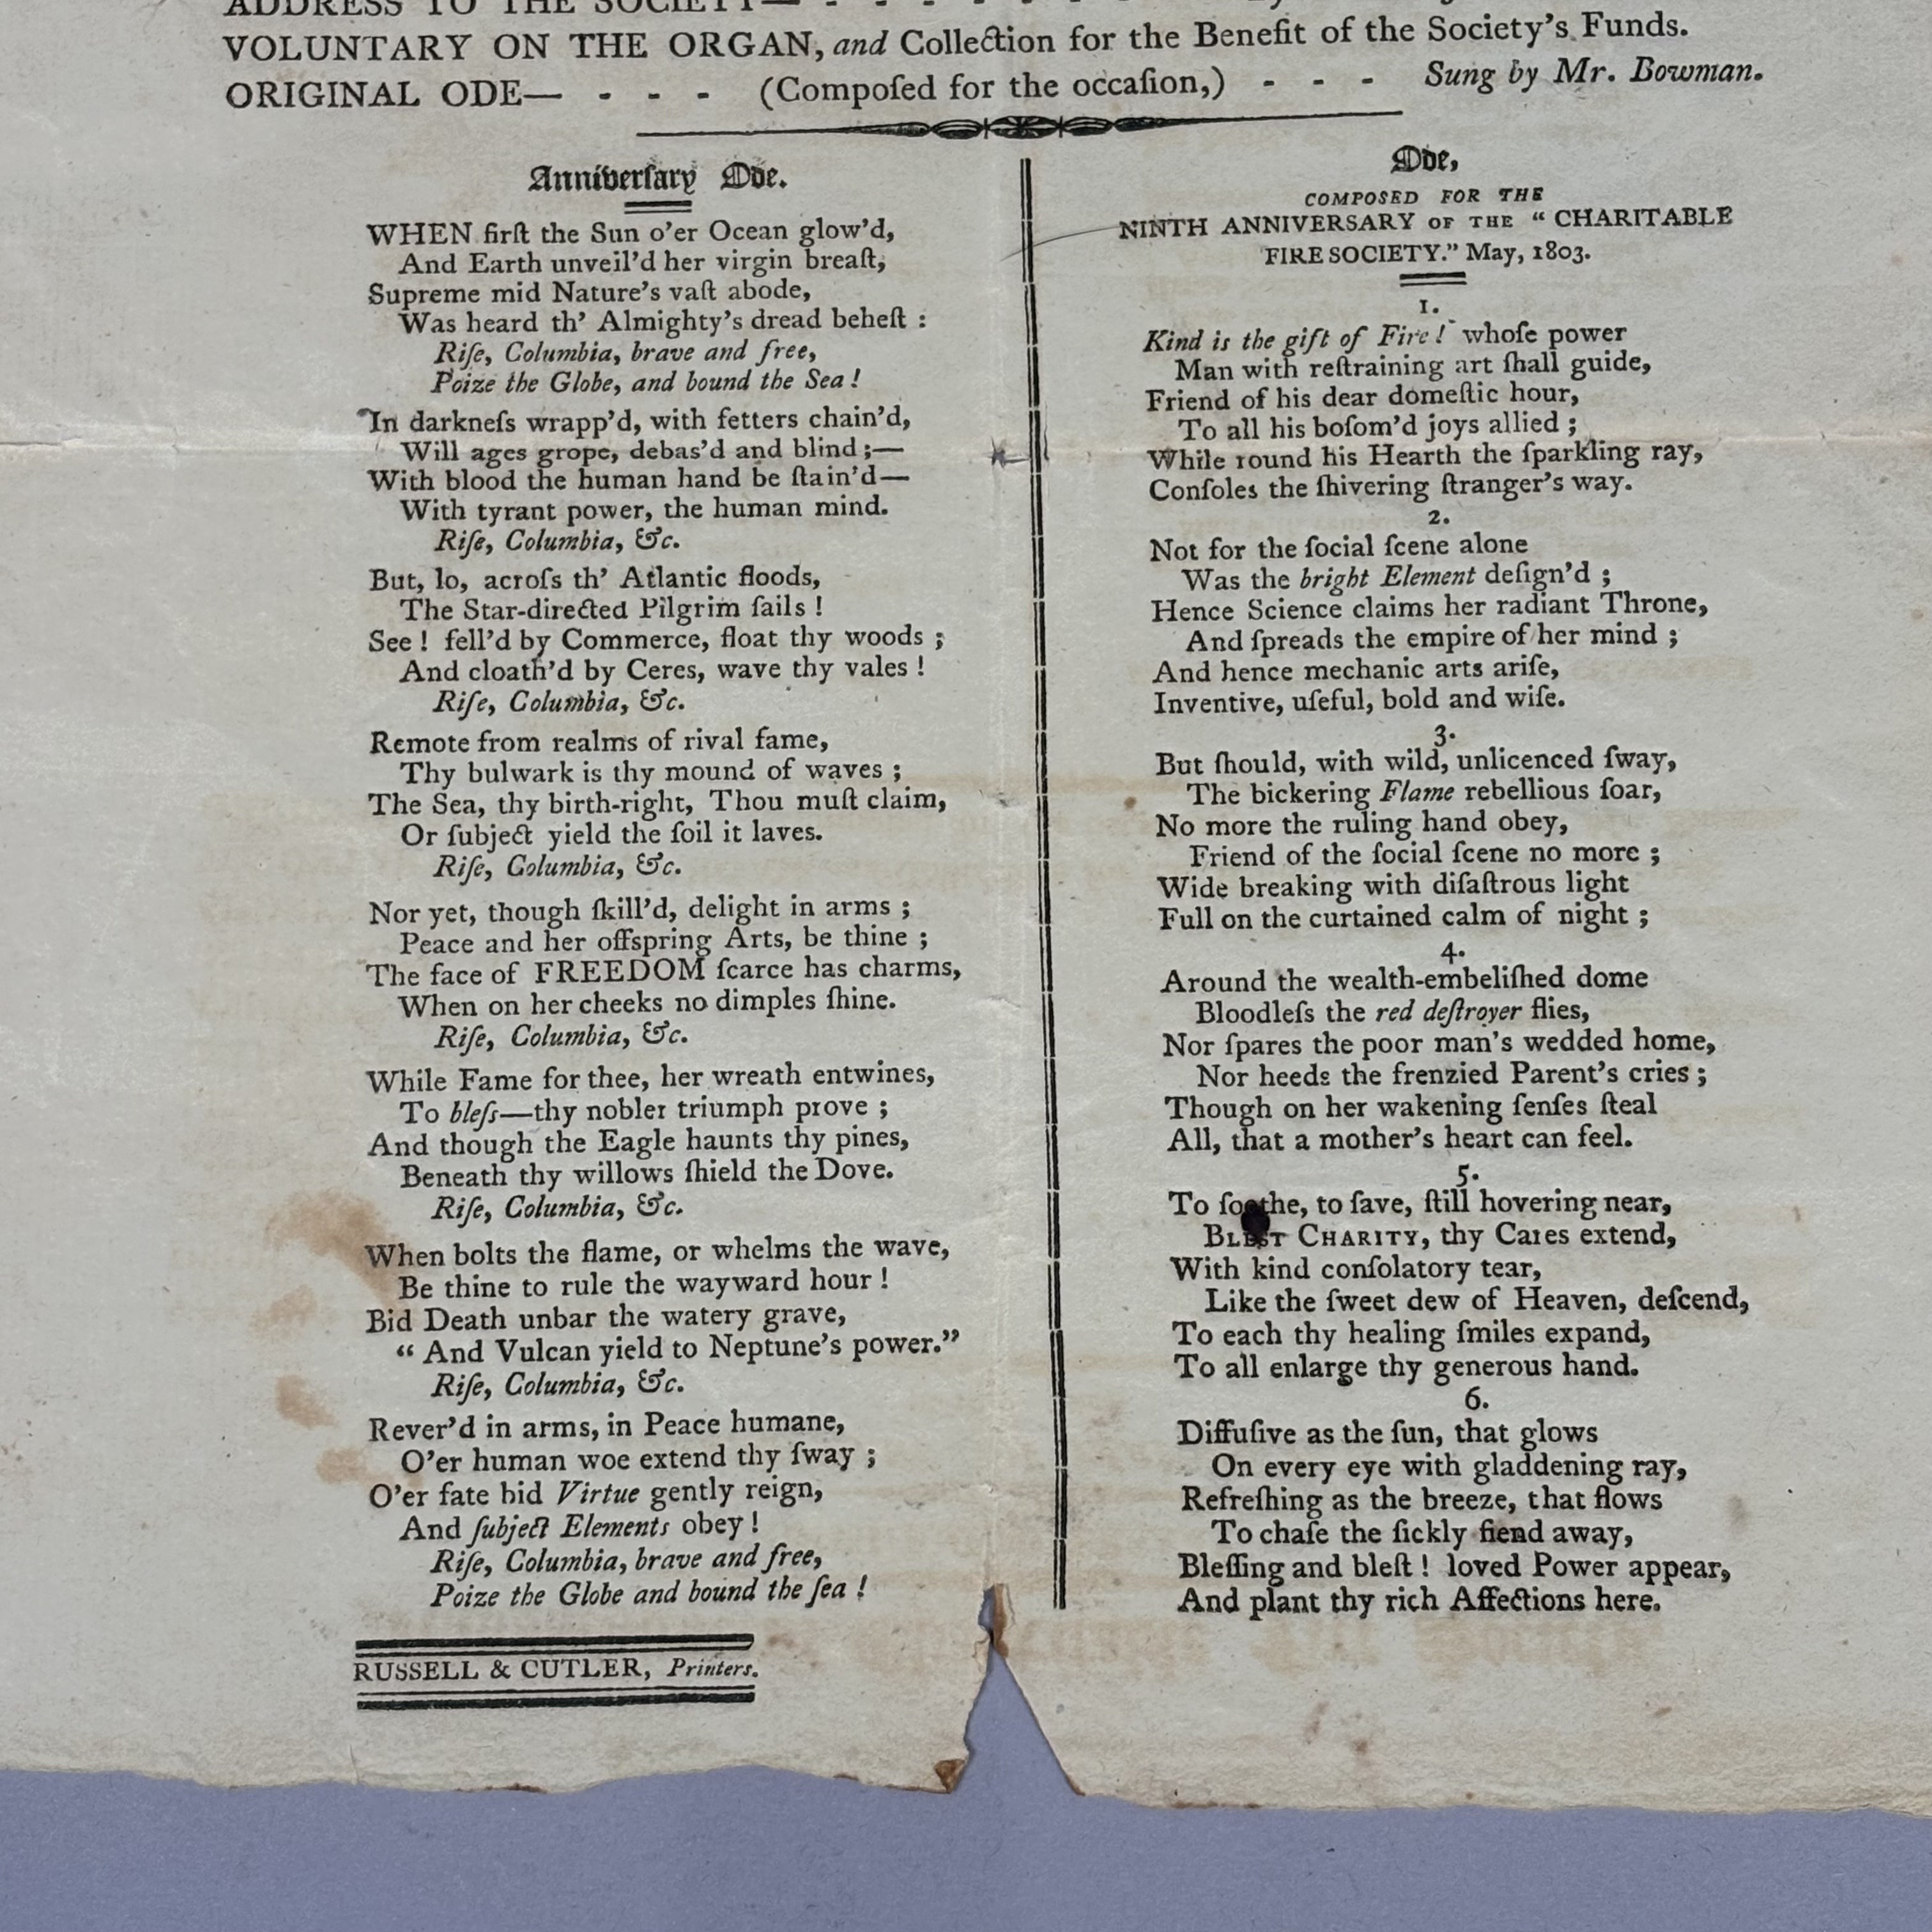 ADDRESS TO THE SOCIETY—
VOLUNTARY ON THE ORGAN, and Collection for the Benefit of the Society's Funds.
ORIGINAL ODE— - - - (Compoſed for the occaſion,) - - - Sung by Mr. Bowman.
Anniverſary Ode.
WHEN firſt the Sun o'er Ocean glow'd,
And Earth unveil'd her virgin breaſt,
Supreme mid Nature's vaſt abode,
Was heard th' Almighty's dread beheſt :
Riſe, Columbia, brave and free,
Poize the Globe, and bound the Sea !
In darkneſs wrapp'd, with fetters chain'd,
Will ages grope, debas'd and blind ;—
With blood the human hand be ſtain'd—
With tyrant power, the human mind.
Riſe, Columbia, &c.
But, lo, acroſs th' Atlantic floods,
The Star-directed Pilgrim ſails !
See ! fell'd by Commerce, float thy woods ;
And cloath'd by Ceres, wave thy vales !
Riſe, Columbia, &c.
Remote from realms of rival fame,
Thy bulwark is thy mound of waves ;
The Sea, thy birth-right, Thou muſt claim,
Or ſubject yield the ſoil it laves.
Riſe, Columbia, &c.
Nor yet, though ſkill'd, delight in arms ;
Peace and her offspring Arts, be thine ;
The face of FREEDOM ſcarce has charms,
When on her cheeks no dimples ſhine.
Riſe, Columbia, &c.
While Fame for thee, her wreath entwines,
To bleſs—thy nobler triumph prove ;
And though the Eagle haunts thy pines,
Beneath thy willows ſhield the Dove.
Riſe, Columbia, &c.
When bolts the flame, or whelms the wave,
Be thine to rule the wayward hour !
Bid Death unbar the watery grave,
“ And Vulcan yield to Neptune's power.”
Riſe, Columbia, &c.
Rever'd in arms, in Peace humane,
O'er human woe extend thy ſway ;
O'er fate bid Virtue gently reign,
And ſubject Elements obey !
Riſe, Columbia, brave and free,
Poize the Globe and bound the ſea !
RUSSELL & CUTLER, Printers.
Ode,
COMPOSED FOR THE
NINTH ANNIVERSARY OF THE “ CHARITABLE
FIRE SOCIETY.” May, 1803.
1.
Kind is the gift of Fire ! whoſe power
Man with reſtraining art ſhall guide,
Friend of his dear domeſtic hour,
To all his boſom'd joys allied ;
While round his Hearth the ſparkling ray,
Conſoles the ſhivering ſtranger's way.
2.
Not for the ſocial ſcene alone
Was the bright Element deſign'd ;
Hence Science claims her radiant Throne,
And ſpreads the empire of her mind ;
And hence mechanic arts ariſe,
Inventive, uſeful, bold and wiſe.
3.
But ſhould, with wild, unlicenced ſway,
The bickering Flame rebellious ſoar,
No more the ruling hand obey,
Friend of the ſocial ſcene no more ;
Wide breaking with diſaſtrous light
Full on the curtained calm of night ;
4.
Around the wealth-embeliſhed dome
Bloodleſs the red deſtroyer flies,
Nor ſpares the poor man's wedded home,
Nor heeds the frenzied Parent's cries ;
Though on her wakening ſenſes ſteal
All, that a mother's heart can feel.
5.
To ſoothe, to ſave, ſtill hovering near,
BLEST CHARITY, thy Cares extend,
With kind conſolatory tear,
Like the ſweet dew of Heaven, deſcend,
To each thy healing ſmiles expand,
To all enlarge thy generous hand.
6.
Diffuſive as the ſun, that glows
On every eye with gladdening ray,
Refreſhing as the breeze, that flows
To chaſe the ſickly fiend away,
Bleſſing and bleſt ! loved Power appear,
And plant thy rich Affections here.